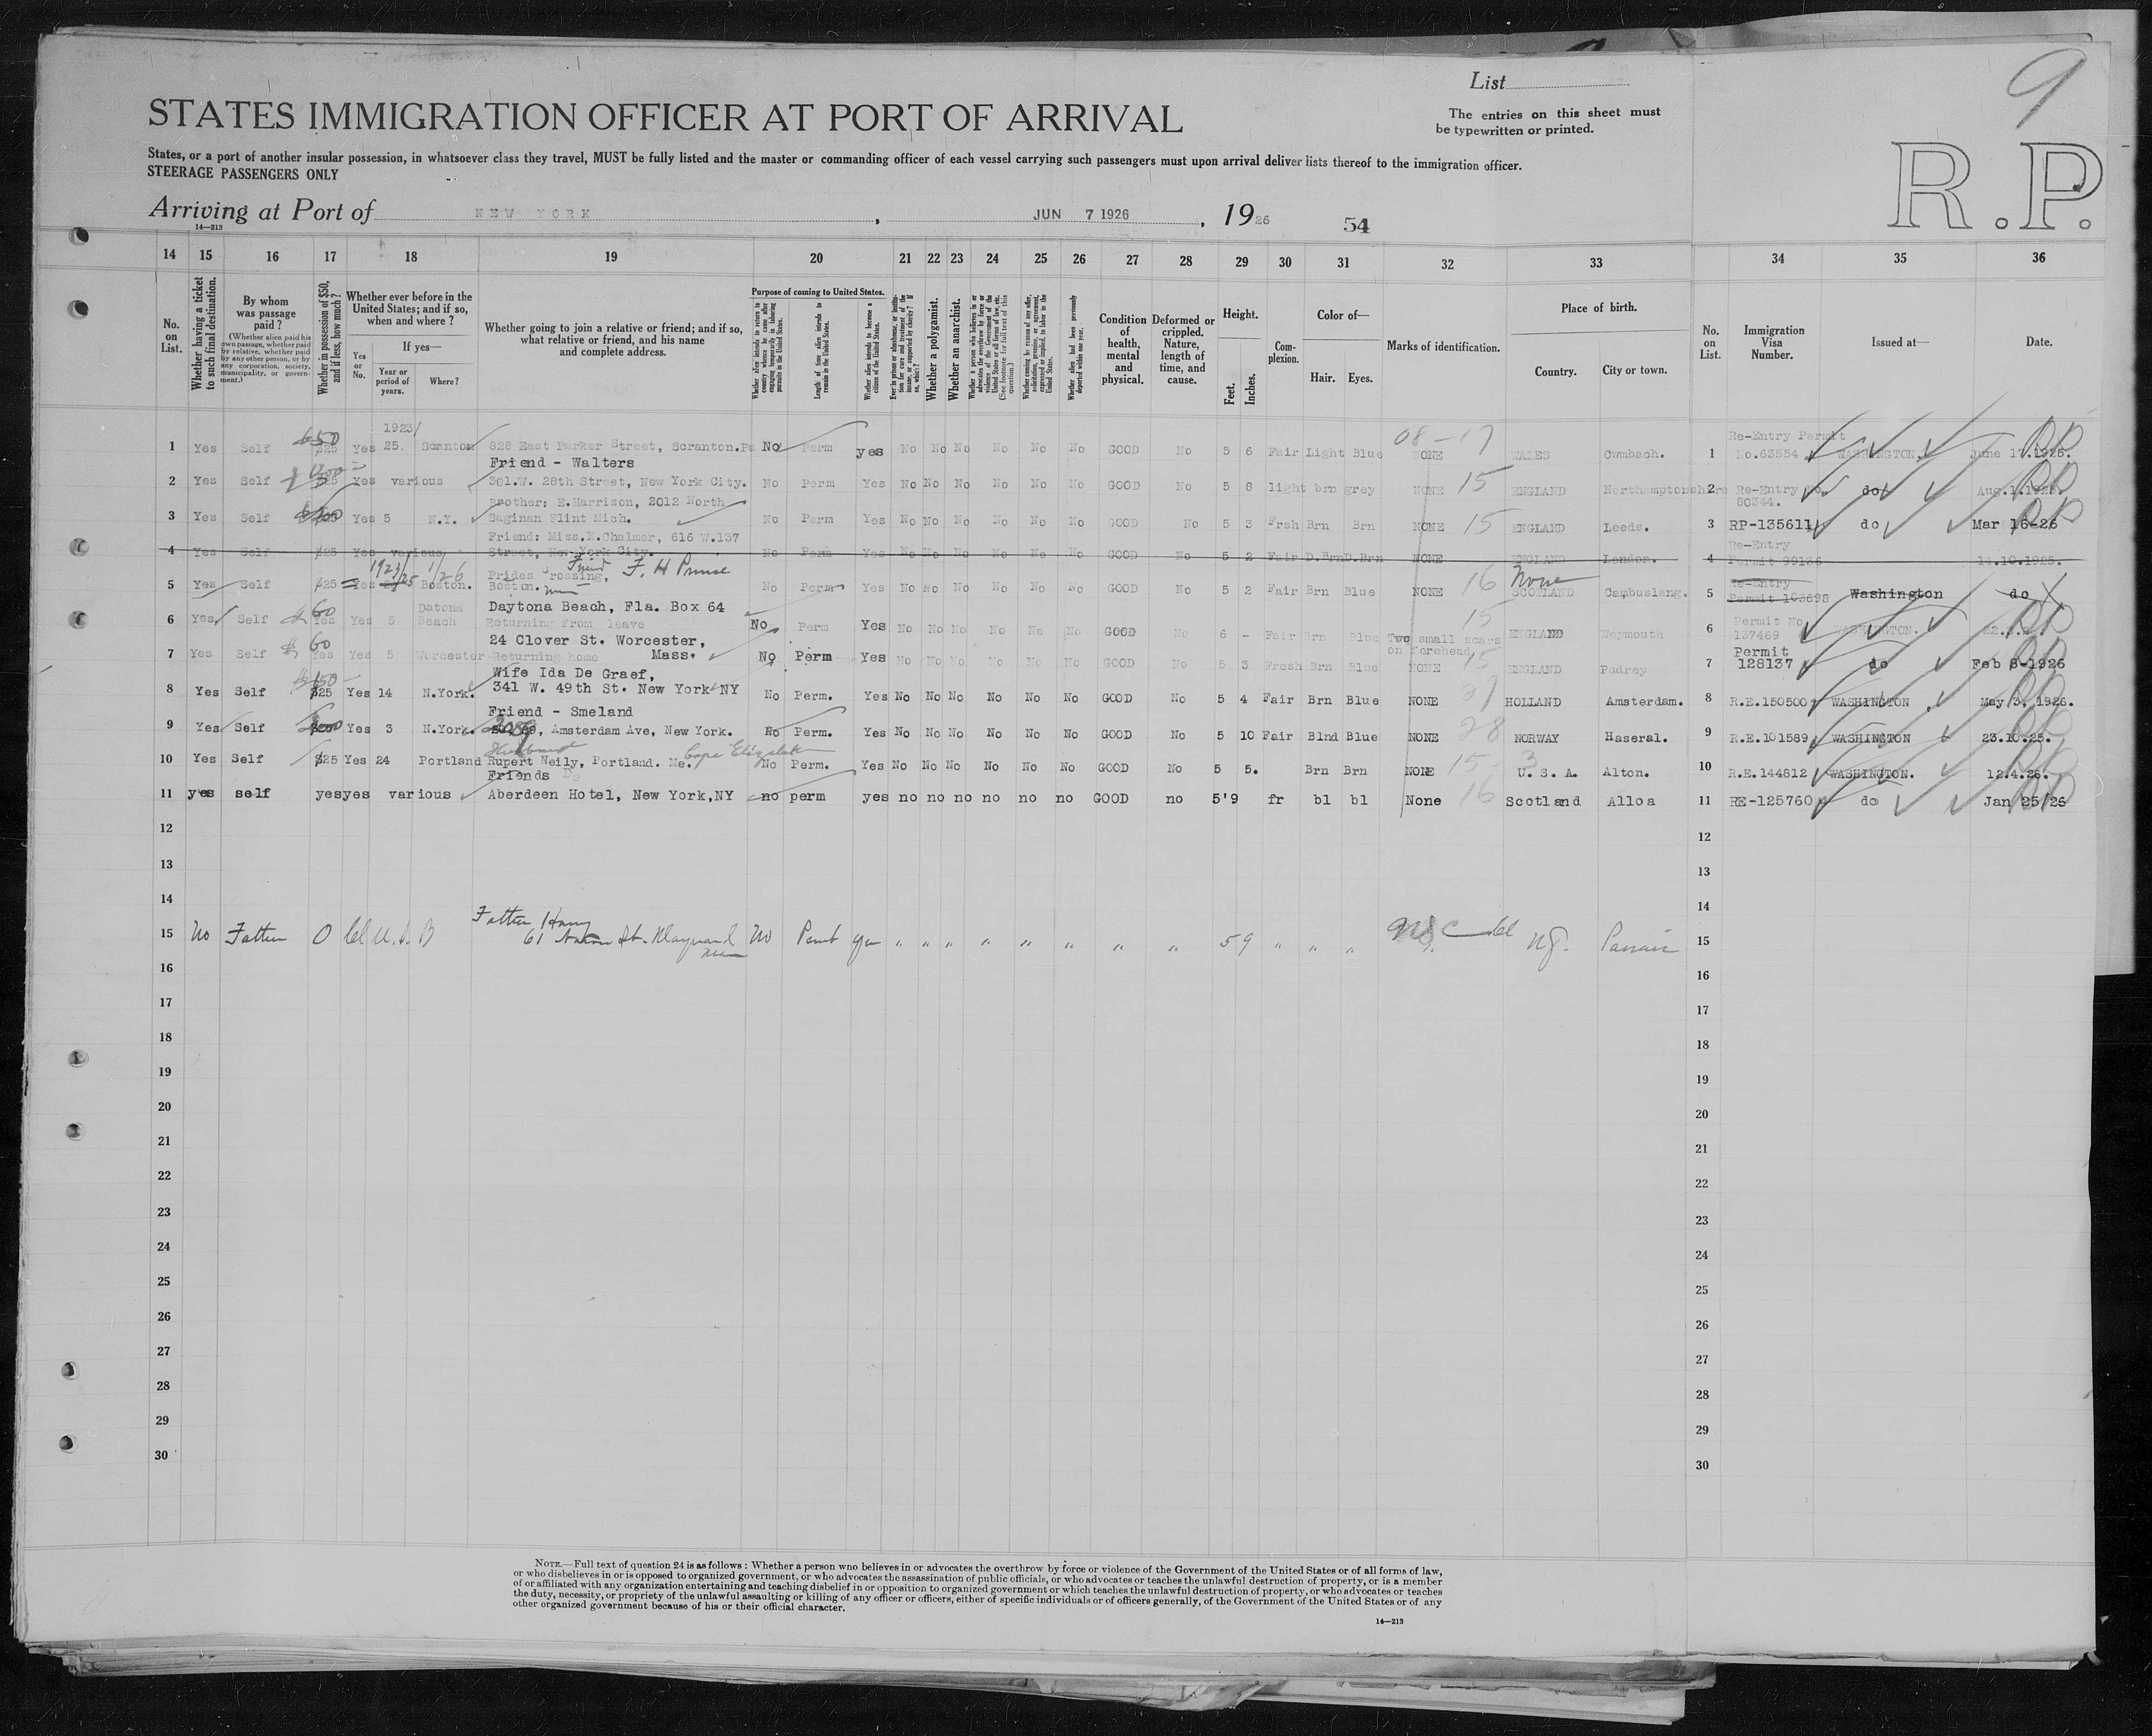 9
List
STATES IMMIGRATION OFFICER AT PORT OF ARRIVAL
The entries on this sheet must
be typewritten or printed.
R.P.
States, or a port of another insular possession, in whatsoever class they travel, MUST be fully listed and the master or commanding officer of each vessel carrying such passengers must upon arrival deliver lists thereof to the immigration officer.
STEERAGE PASSENGERS ONLY
Arriving at Port of NEW YORK, JUN 7 1926, 1926 54
14—213
14 15 16 17 18 19 20 21 22 23 24 25 26 27 28 29 30 31 32 33 34 35 36
No. on List.
Whether having a ticket to such final destination.
By whom was passage paid?
(Whether alien paid his own passage, whether paid by relative, whether paid by any other person, or by any corporation, society, municipality, or government.)
Whether in possession of $50, and if less, how much?
Whether ever before in the United States; and if so, when and where?
Yes or No.
If yes—
Year or period of years.
Where?
Whether going to join a relative or friend; and if so, what relative or friend, and his name and complete address.
Purpose of coming to United States.
Whether alien intends to return to country whence he came after engaging temporarily in laboring pursuits in the United States.
Length of time alien intends to remain in the United States.
Whether alien intends to become a citizen of the United States.
Whether a polygamist.
Whether an anarchist.
Condition of health, mental and physical.
Deformed or crippled. Nature, length of time, and cause.
Height.
Feet. Inches.
Complexion.
Color of—
Hair. Eyes.
Marks of identification.
Place of birth.
Country. City or town.
No. on List.
Immigration Visa Number.
Issued at—
Date.
1923/ 08-17 Re-Entry Permit
1 Yes Self $25 $50 Yes 25. Scranton 828 East Parker Street, Scranton.Pa No Perm yes No No No No No No GOOD No 5 6 Fair Light Blue NONE WALES Cwmbach. 1 No.63554 WASHINGTON. June 17.1925. RP
Friend - Walters
2 Yes Self $25 Yes various 301.W. 28th Street, New York City. No Perm Yes No No No No No No GOOD No 5 8 light brn grey NONE 15 ENGLAND Northamptonshire 2 Re-Entry No. 80344. do Aug.1.1925. RP
Brother: E.Harrison, 2012 North
3 Yes Self Yes 5 N.Y. Saginan Flint Mich. No Perm Yes No No No No No No GOOD No 5 3 Frsh Brn Brn NONE 15 ENGLAND Leeds. 3 RP-135611 do Mar 16-26 RP
Friend: Miss.N.Chalmer, 616 W.137
4 Yes Self $25 Yes various Street, New York City. No Perm Yes No No No No No No GOOD No 5 2 Fair D.Brn D.Brn NONE ENGLAND London. 4 Re-Entry Permit 99136 14.10.1925.
1923/25 1/26 Friend F. H Prince
5 Yes Self $25 Yes Boston. Prides Crossing, Boston. No Perm Yes No No No No No No GOOD No 5 2 Fair Brn Blue NONE 16 None SCOTLAND Cambuslang. 5 Re-Entry Permit 103698 Washington do
60 Datona Daytona Beach, Fla. Box 64 15
6 Yes Self Yes Yes 5 Beach Returning from leave No Perm Yes No No No No No No GOOD No 6 - Fair Brn Blue Two small scars on forehead ENGLAND Weymouth 6 Permit No 137469 WASHINGTON. RP
$ 60 24 Clover St. Worcester, Mass.
7 Yes Self Yes Yes 5 Worcester Returning home No Perm Yes No No No No No No GOOD No 5 3 Fresh Brn Blue NONE 15 ENGLAND Pudrey 7 Permit 128137 do Feb 8-1926 RP
Wife Ida De Graef,
8 Yes Self $25 $150 Yes 14 N.York. 341 W. 49th St. New York NY No Perm. Yes No No No No No No GOOD No 5 4 Fair Brn Blue NONE 27 HOLLAND Amsterdam. 8 R.E.150500 WASHINGTON. May/3. 1926. RP
Friend - Smeland
9 Yes Self Yes 3 N.York. Amsterdam Ave, New York. No Perm. Yes No No No No No No GOOD No 5 10 Fair Blnd Blue NONE 28 NORWAY Haseral. 9 R.E.101589 WASHINGTON 23.10.25. RP
Husband Cape Elizabeth
10 Yes Self $25 Yes 24 Portland Rupert Neily, Portland. Me. No Perm. Yes No No No No No No GOOD No 5 5. Brn Brn NONE 15-3 U. S. A. Alton. 10 R.E.144812 WASHINGTON. 12.4.26. RP
Friends
11 yes self yes yes various Aberdeen Hotel, New York,NY no perm yes no no no no no no GOOD no 5'9 fr bl bl None 16 Scotland Alloa 11 RE-125760 do Jan 25/26 RP
12 12
13 13
14 14
Father Harry
15 No Father 0 61 St. Maynard Mass No Permt yes " " " " " " " " 5 9 " " " N.J. Passaic 15
16 16
17 17
18 18
19 19
20 20
21 21
22 22
23 23
24 24
25 25
26 26
27 27
28 28
29 29
30 30
NOTE.—Full text of question 24 is as follows: Whether a person who believes in or advocates the overthrow by force or violence of the Government of the United States or of all forms of law,
or who disbelieves in or is opposed to organized government, or who advocates the assassination of public officials, or who advocates or teaches the unlawful destruction of property, or is a member
of or affiliated with any organization entertaining and teaching disbelief in or opposition to organized government or which teaches the unlawful destruction of property, or who advocates or teaches
the duty, necessity, or propriety of the unlawful assaulting or killing of any officer or officers, either of specific individuals or of officers generally, of the Government of the United States or of any
other organized government because of his or their official character.
14—213